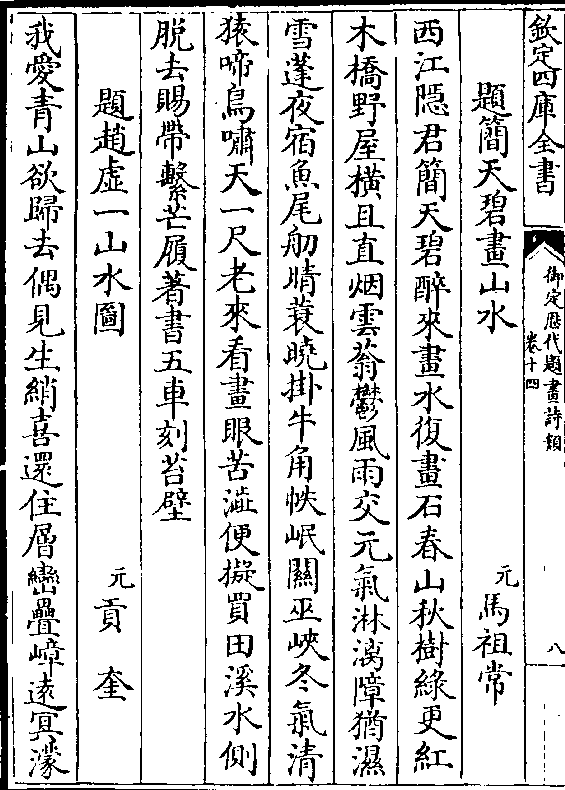 欽定四庫全書
御定歷代題畫詩類
卷十四
八
題簡天碧畫山水
元馬祖常
西江隠君簡天碧醉來畫水復畫石春山秋樹緑更紅
木橋野屋横且直烟雲蓊鬱風雨交元氣淋漓障猶濕
雪蓬夜宿魚尾舠晴蓑曉掛牛角帙岷關巫峽冬氣清
猿啼鳥嘯天一尺老來看畫眼苦澁便擬買田溪水側
脱去賜帶繫芒屨著書五車刻苔壁
題趙虚一山水圖
元貢奎
我愛青山欲歸去偶見生綃喜還住層巒疊嶂逺冥濛